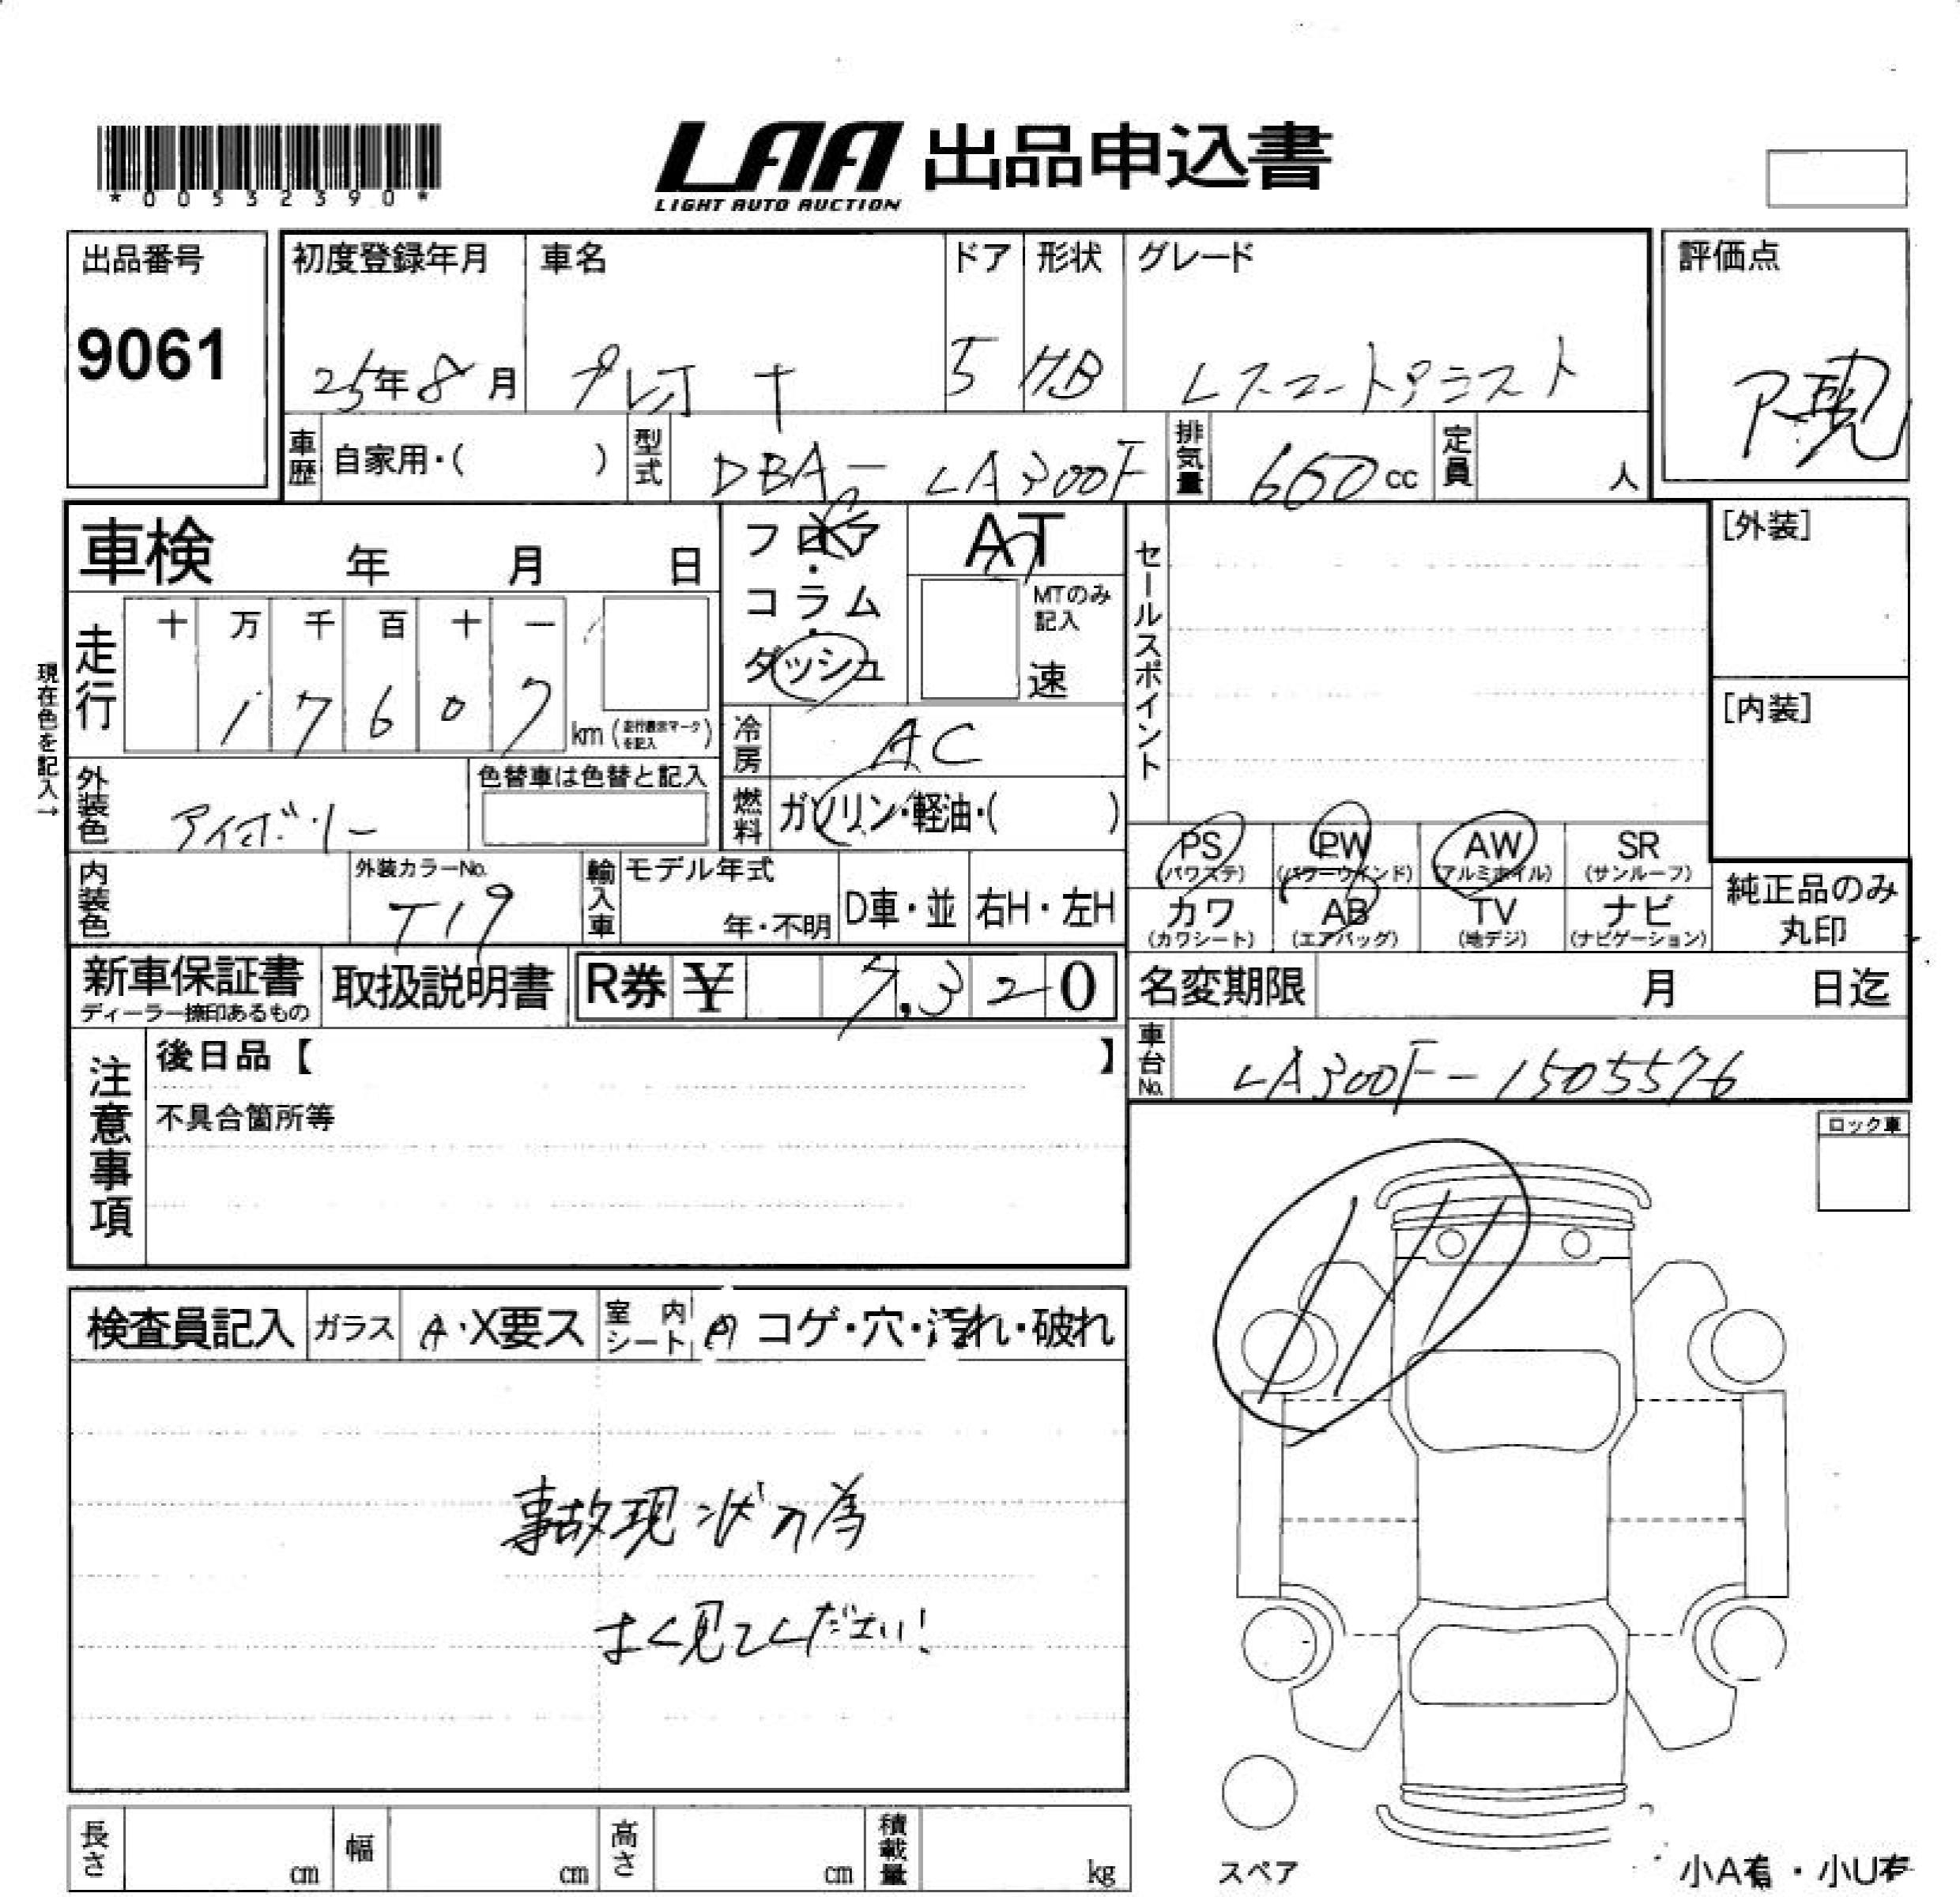 *00532390*
LAA 出品申込書
LIGHT AUTO AUCTION
出品番号 初度登録年月 車名 ドア 形状 グレード 評価点
9061 25年8月 プレオ + 5 HB Lスマートアシスト
車歴 自家用・( ) 型式 DBA-LA300F 排気量 660cc 定員 人
車検 年 月 日 フロア・コラム・ダッシュ AT セールスポイント [外装]
MTのみ記入
速
現在色を記入→
走行 十 万 千 百 十 一
1 7 6 0 7 km (走行表示マークを記入) [内装]
冷房 AC
外装色 アイボリー 色替車は色替と記入 燃料 ガソリン・軽油・( )
PS PW AW SR
(パワステ) (パワーウインド) (アルミホイル) (サンルーフ)
内装色 外装カラーNo. T19 輸入車 モデル年式 年・不明 D車・並 右H・左H
カワ AB TV ナビ
(カワシート) (エアバッグ) (地デジ) (ナビゲーション)
純正品のみ
丸印
新車保証書 取扱説明書 R券 ¥ 7,320 名変期限 月 日迄
ディーラー捺印あるもの
注意事項 後日品【 】 車台No. LA300F-1505576
不具合箇所等
ロック車
検査員記入 ガラス A・X要ス 室内シート コゲ・穴・汚れ・破れ
事故現状の為
よく見てください!
長さ cm 幅 cm 高さ cm 積載量 kg
スペア 小A有・小U有